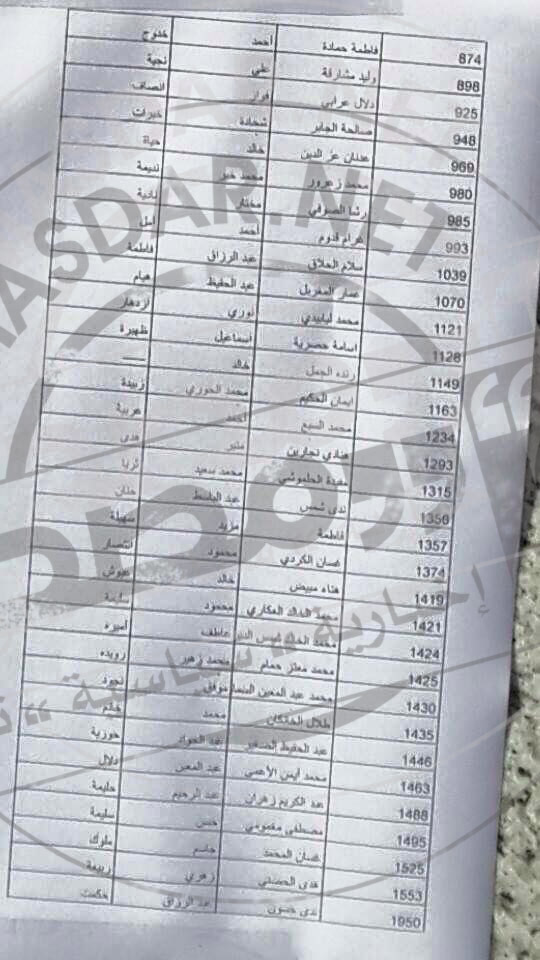 874 فاطمة حمادة احمد خدوج
898 وليد مشارقة علي نجية
925 دلال عرابي فواز انصاف
948 صالحة الجابر شحادة خيرات
969 عدنان عز الدين خالد حياة
980 محمد زعرور محمد خير نديمة
985 رشا الصوفي مختار نادية
993 غرام قدوم احمد امل
1039 سلام الحلاق عبد الرزاق فاطمة
1070 عمار المغربل عبد الحفيظ هيام
1121 محمد لبابيدي نوري ازدهار
1128 اسامة حصرية اسماعيل ظهيرة
1149 رنده الجمل خالد ـــــ
1163 ايمان الحكيم محمد الحوري زبيدة
1234 محمد السبع احمد عربية
1293 هنادي نجارين منير هدى
1315 مفيدة محمد سعيد ثريا
1356 ندى شمس عبد الباسط حنان
1357 فاطمة مزيد سهيلة
1374 غسان الكردي محمود انتصار
1419 هناء مبيض خالد عيوش
1421 محمد الخالد العكاري محمود سليمة
1424 محمد الخالد شمس الدين عاطف اميره
1425 محمد معتز حمام محمد زهير رويده
1430 محمد عبد المعين موفق نجود
1435 طلال الخانكان محمد خانم
1446 عبد الحفيظ الصغير عبد الجواد حورية
1463 محمد الأعمى عبد المعين دلال
1488 عبد الكريم زهران عبد الرحيم حليمة
1495 مصطفى حسن سليمة
1525 غسان المحمد جاسم ملوك
1553 هدى الحمصي زهري ربيعة
1950 ندى حسون عبد الرزاق حكمت
MASDAR.NET
إخبارية ،، سياسية ،،